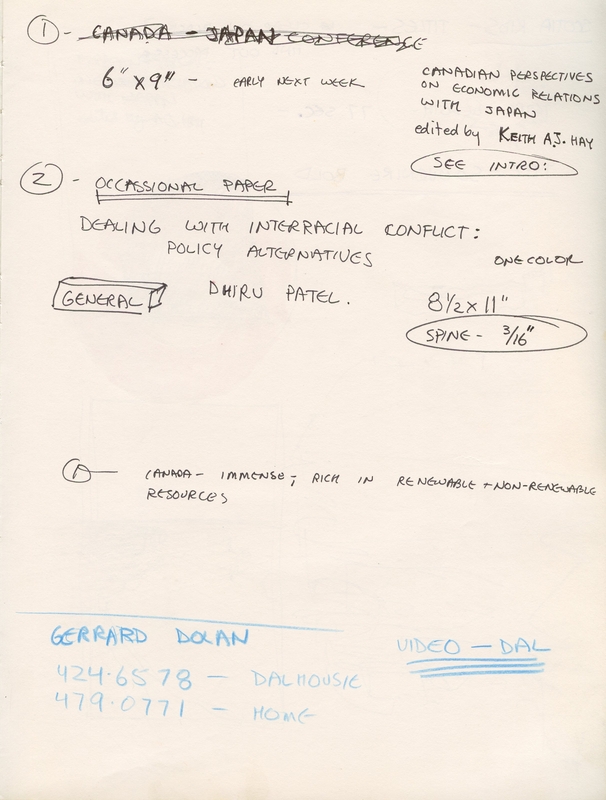 1 - CANADA - JAPAN CONFERENCE
6" x 9" - EARLY NEXT WEEK
CANADIAN PERSPECTIVES
ON ECONOMIC RELATIONS
WITH JAPAN
edited by KEITH A.J. HAY
SEE INTRO:
2 - OCCASSIONAL PAPER
DEALING WITH INTERRACIAL CONFLICT:
POLICY ALTERNATIVES
ONE COLOR
GENERAL
DHIRU PATEL.
8 1/2 x 11"
SPINE - 3/16"
A — CANADA - IMMENSE; RICH IN RENEWABLE + NON-RENEWABLE
RESOURCES
GERRARD DOLAN
VIDEO — DAL
424.6578 — DALHOUSIE
479.0771 — HOME